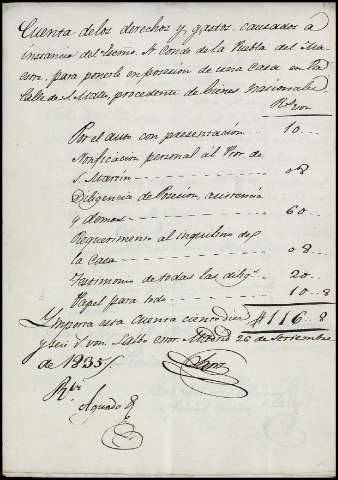 Cuenta de los derechos y gastos causados a
instancia del Exmo. S. Conde de la Puebla del Ma
estre, para ponerle en posesion de una Casa en la
Calle de S. Mateo, procedente de bienes nacionales
Rs. von
Por el auto con presentación 10
Notificacion personal al Pror. de
S. Martin 08
Diligencia de Posesion, asistencia
y demas 60
Requerimento al inquilino de
la Casa 08
Testimonio de todas las dilig.s 20
Papel para todo 10 8
Importa esta Cuenta ciento diez #116 8
y seis r.s von. Salbo error. Madrid 26 de Setiembre
de 1835
Rvi
Aguado